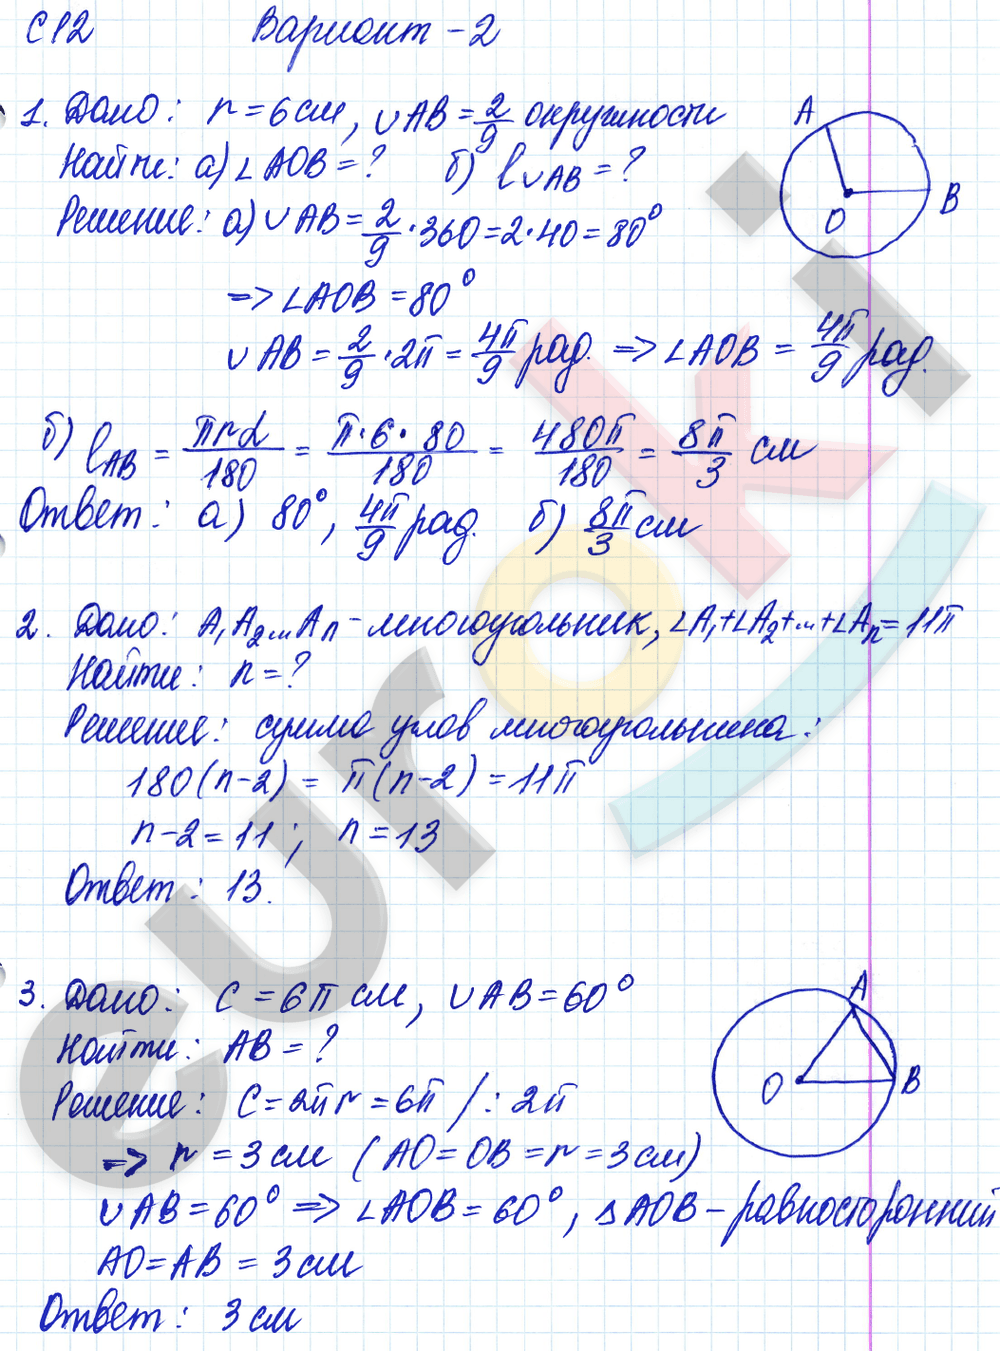 С12 Вариант - 2
1. Дано: r = 6 см, ∪AB = 2/9 окружности
Найти: а) ∠AOB = ? б) l∪AB = ?
Решение: а) ∪AB = 2/9 · 360 = 2 · 40 = 80°
=> ∠AOB = 80°
∪AB = 2/9 · 2π = 4π/9 рад. => ∠AOB = 4π/9 рад.
б) lAB = πrα/180 = π·6·80/180 = 480π/180 = 8π/3 см
Ответ: а) 80°, 4π/9 рад. б) 8π/3 см
A
B
O
2. Дано: A₁A₂...Aₙ - многоугольник, ∠A₁+∠A₂+...+∠Aₙ = 11π
Найти: n = ?
Решение: сумма углов многоугольника:
180(n-2) = π(n-2) = 11π
n-2 = 11; n = 13
Ответ: 13.
3. Дано: C = 6π см, ∪AB = 60°
Найти: AB = ?
Решение: C = 2πr = 6π /: 2π
=> r = 3 см (AO = OB = r = 3 см)
∪AB = 60° => ∠AOB = 60°, △AOB - равносторонний
AO = AB = 3 см
Ответ: 3 см
A
O
B
euroki